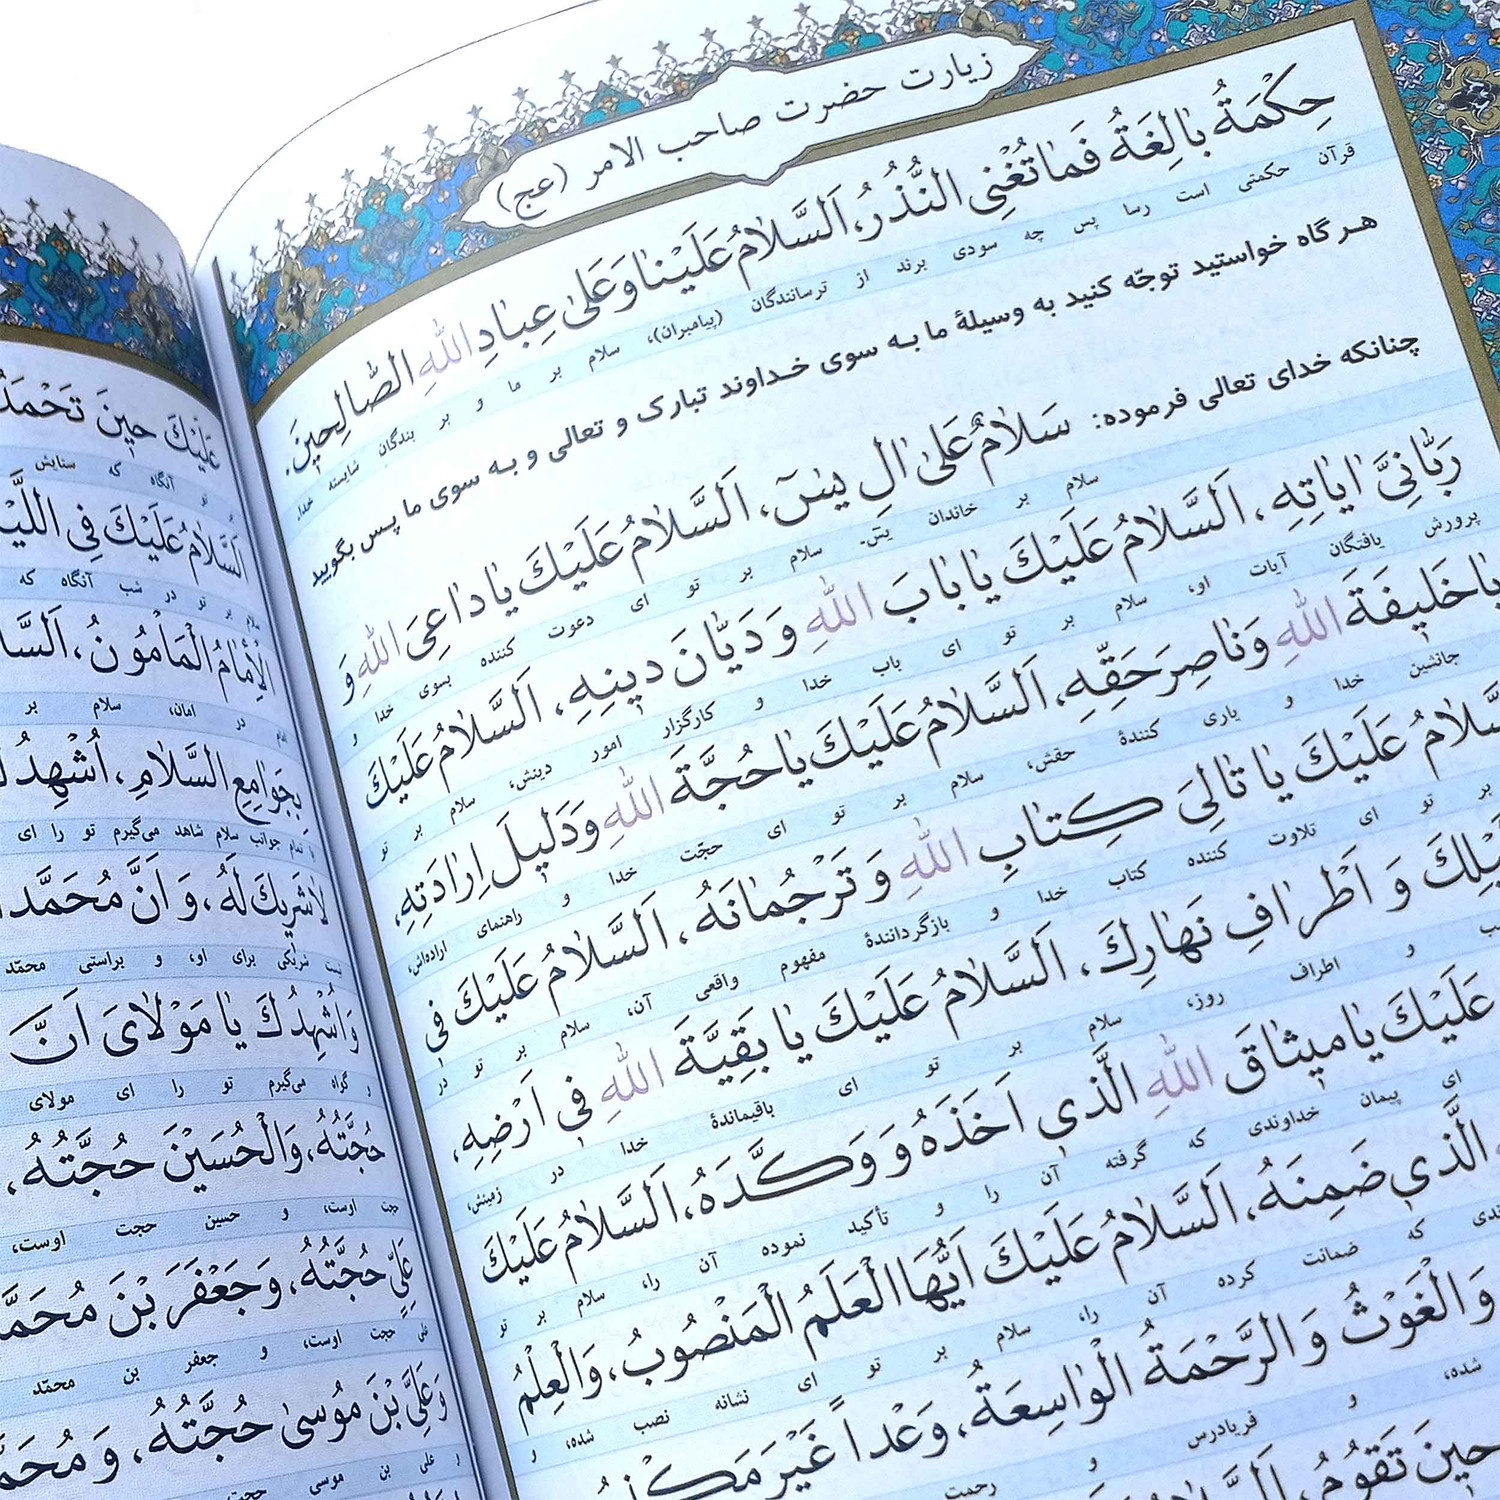 زیارت حضرت صاحب الامر (عج)
حِكْمَةٌ بٰالِغَةٌ فَمٰا تُغْنِى النُّذُرُ، اَلسَّلاٰمُ عَلَيْنٰا وَعَلىٰ عِبٰادِ اللهِ الصّٰالِحينَ.
قرآن حکمتی است رسا پس چه سودی برند از ترسانندگان (پیامبران)، سلام بر ما و بر بندگان شایسته خدا.
هر گاه خواستید توجّه کنید به وسیلهٔ ما به سوی خداوند تبارک و تعالی و به سوی ما پس بگویید
چنانکه خدای تعالی فرموده: سَلاٰمٌ عَلىٰ اٰلِ يٰسٓ، اَلسَّلاٰمُ عَلَيْكَ يٰا دٰاعِىَ اللهِ وَ
سلام بر خاندان یسٓ- سلام بر تو ای دعوت کننده بسوی خدا و
رَبّٰانِىَّ اٰيٰاتِهِ، اَلسَّلاٰمُ عَلَيْكَ يٰا بٰابَ اللهِ وَ دَيّٰانَ دينِهِ، اَلسَّلاٰمُ عَلَيْكَ
پرورش یافتگان آیات او، سلام بر تو ای باب خدا و کارگزار امور دینش، سلام بر تو
يٰا خَليفَةَ اللهِ وَنٰاصِرَ حَقِّهِ، اَلسَّلاٰمُ عَلَيْكَ يٰا حُجَّةَ اللهِ وَدَليلَ اِرٰادَتِهِ،
جانشین خدا و یاری کنندهٔ حقش، سلام بر تو ای حجّت خدا و راهنمای اراده‌اش،
عَلَيْكَ يٰا تٰالِىَ كِتٰابِ اللهِ وَ تَرْجُمٰانَهُ، اَلسَّلاٰمُ عَلَيْكَ فى
بر تو ای تلاوت کننده کتاب خدا و بازگردانندهٔ مفهوم واقعی آن، سلام بر تو در
وَ اَطْرٰافِ نَهٰارِكَ، اَلسَّلاٰمُ عَلَيْكَ يٰا بَقِيَّةَ اللهِ فى اَرْضِهِ،
و اطراف روز، سلام بر تو ای باقیماندهٔ خدا در زمینش،
عَلَيْكَ يٰا ميثٰاقَ اللهِ الَّذى اَخَذَهُ وَ وَكَّدَهُ، اَلسَّلاٰمُ عَلَيْكَ
ای پیمان خداوندی که گرفته آن را و تأکید نموده آن را، سلام بر تو
الَّذى ضَمِنَهُ، اَلسَّلاٰمُ عَلَيْكَ اَيُّهَا الْعَلَمُ الْمَنْصُوبُ، وَالْعِلْمُ
که ضمانت کرده آن را، سلام بر تو ای نشانه نصب شده، و
وَالْغَوْثُ وَالرَّحْمَةُ الْوٰاسِعَةُ، وَعْداً غَيْرَ
شده، و فریادرس و رحمت
حينَ تَقُومُ،
عَلَيْكَ حينَ تَحْمَدُ
تو آنگاه که ستایش
اَلسَّلاٰمُ عَلَيْكَ فِى
سلام بر تو در شب آنگاه که
الْاِمٰامُ الْمَاْمُونُ،
در امان، سلام بر
بِجَوٰامِعِ السَّلاٰمِ، اُشْهِدُ
تمام جوانب سلام شاهد می‌گیرم تو را ای
لاٰ شَريكَ لَهُ، وَ اَنَّ مُحَمَّداً
شریکی برای او، و براستی محمّد
وَ اُشْهِدُكَ يٰا مَوْلاٰىَ اَنَّ
و گواه می‌گیرم تو را ای مولای
حُجَّتُهُ، وَالْحُسَيْنَ حُجَّتُهُ،
حجت اوست، و حسین حجت اوست،
حُجَّتُهُ، وَجَعْفَرَ بْنَ
حجت اوست، و جعفر بن محمّد
وَعَلِىَّ بْنَ مُوسىٰ حُجَّتُهُ،
و علی بن موسی حجت